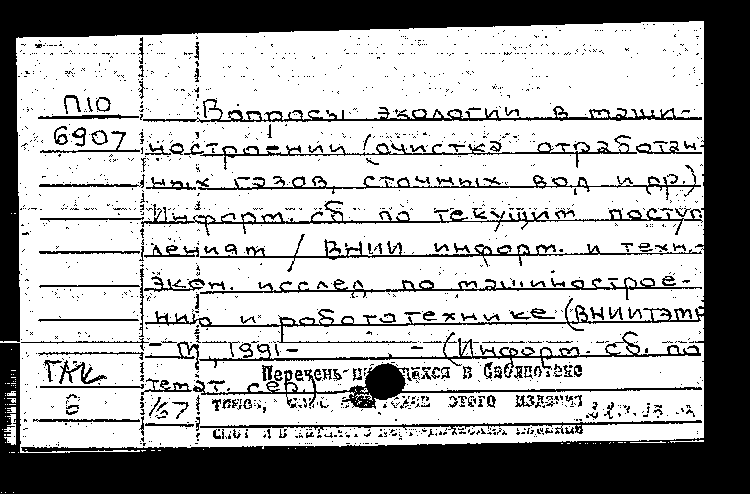 П10
6907
Вопросы экологии в маши-
ностроении (очистка отработан-
ных газов, сточных вод и др.)
Информ. сб. по текущим поступ
лениям / ВНИИ информ. и техн.-
экон. исслед. по машинострое-
нию и робототехнике (ВНИИТЭМР
- М, 1991- . - (Информ. сб. по
Перечень в библиотеке
темат. сер.)
томов, этого издания
1/67
6